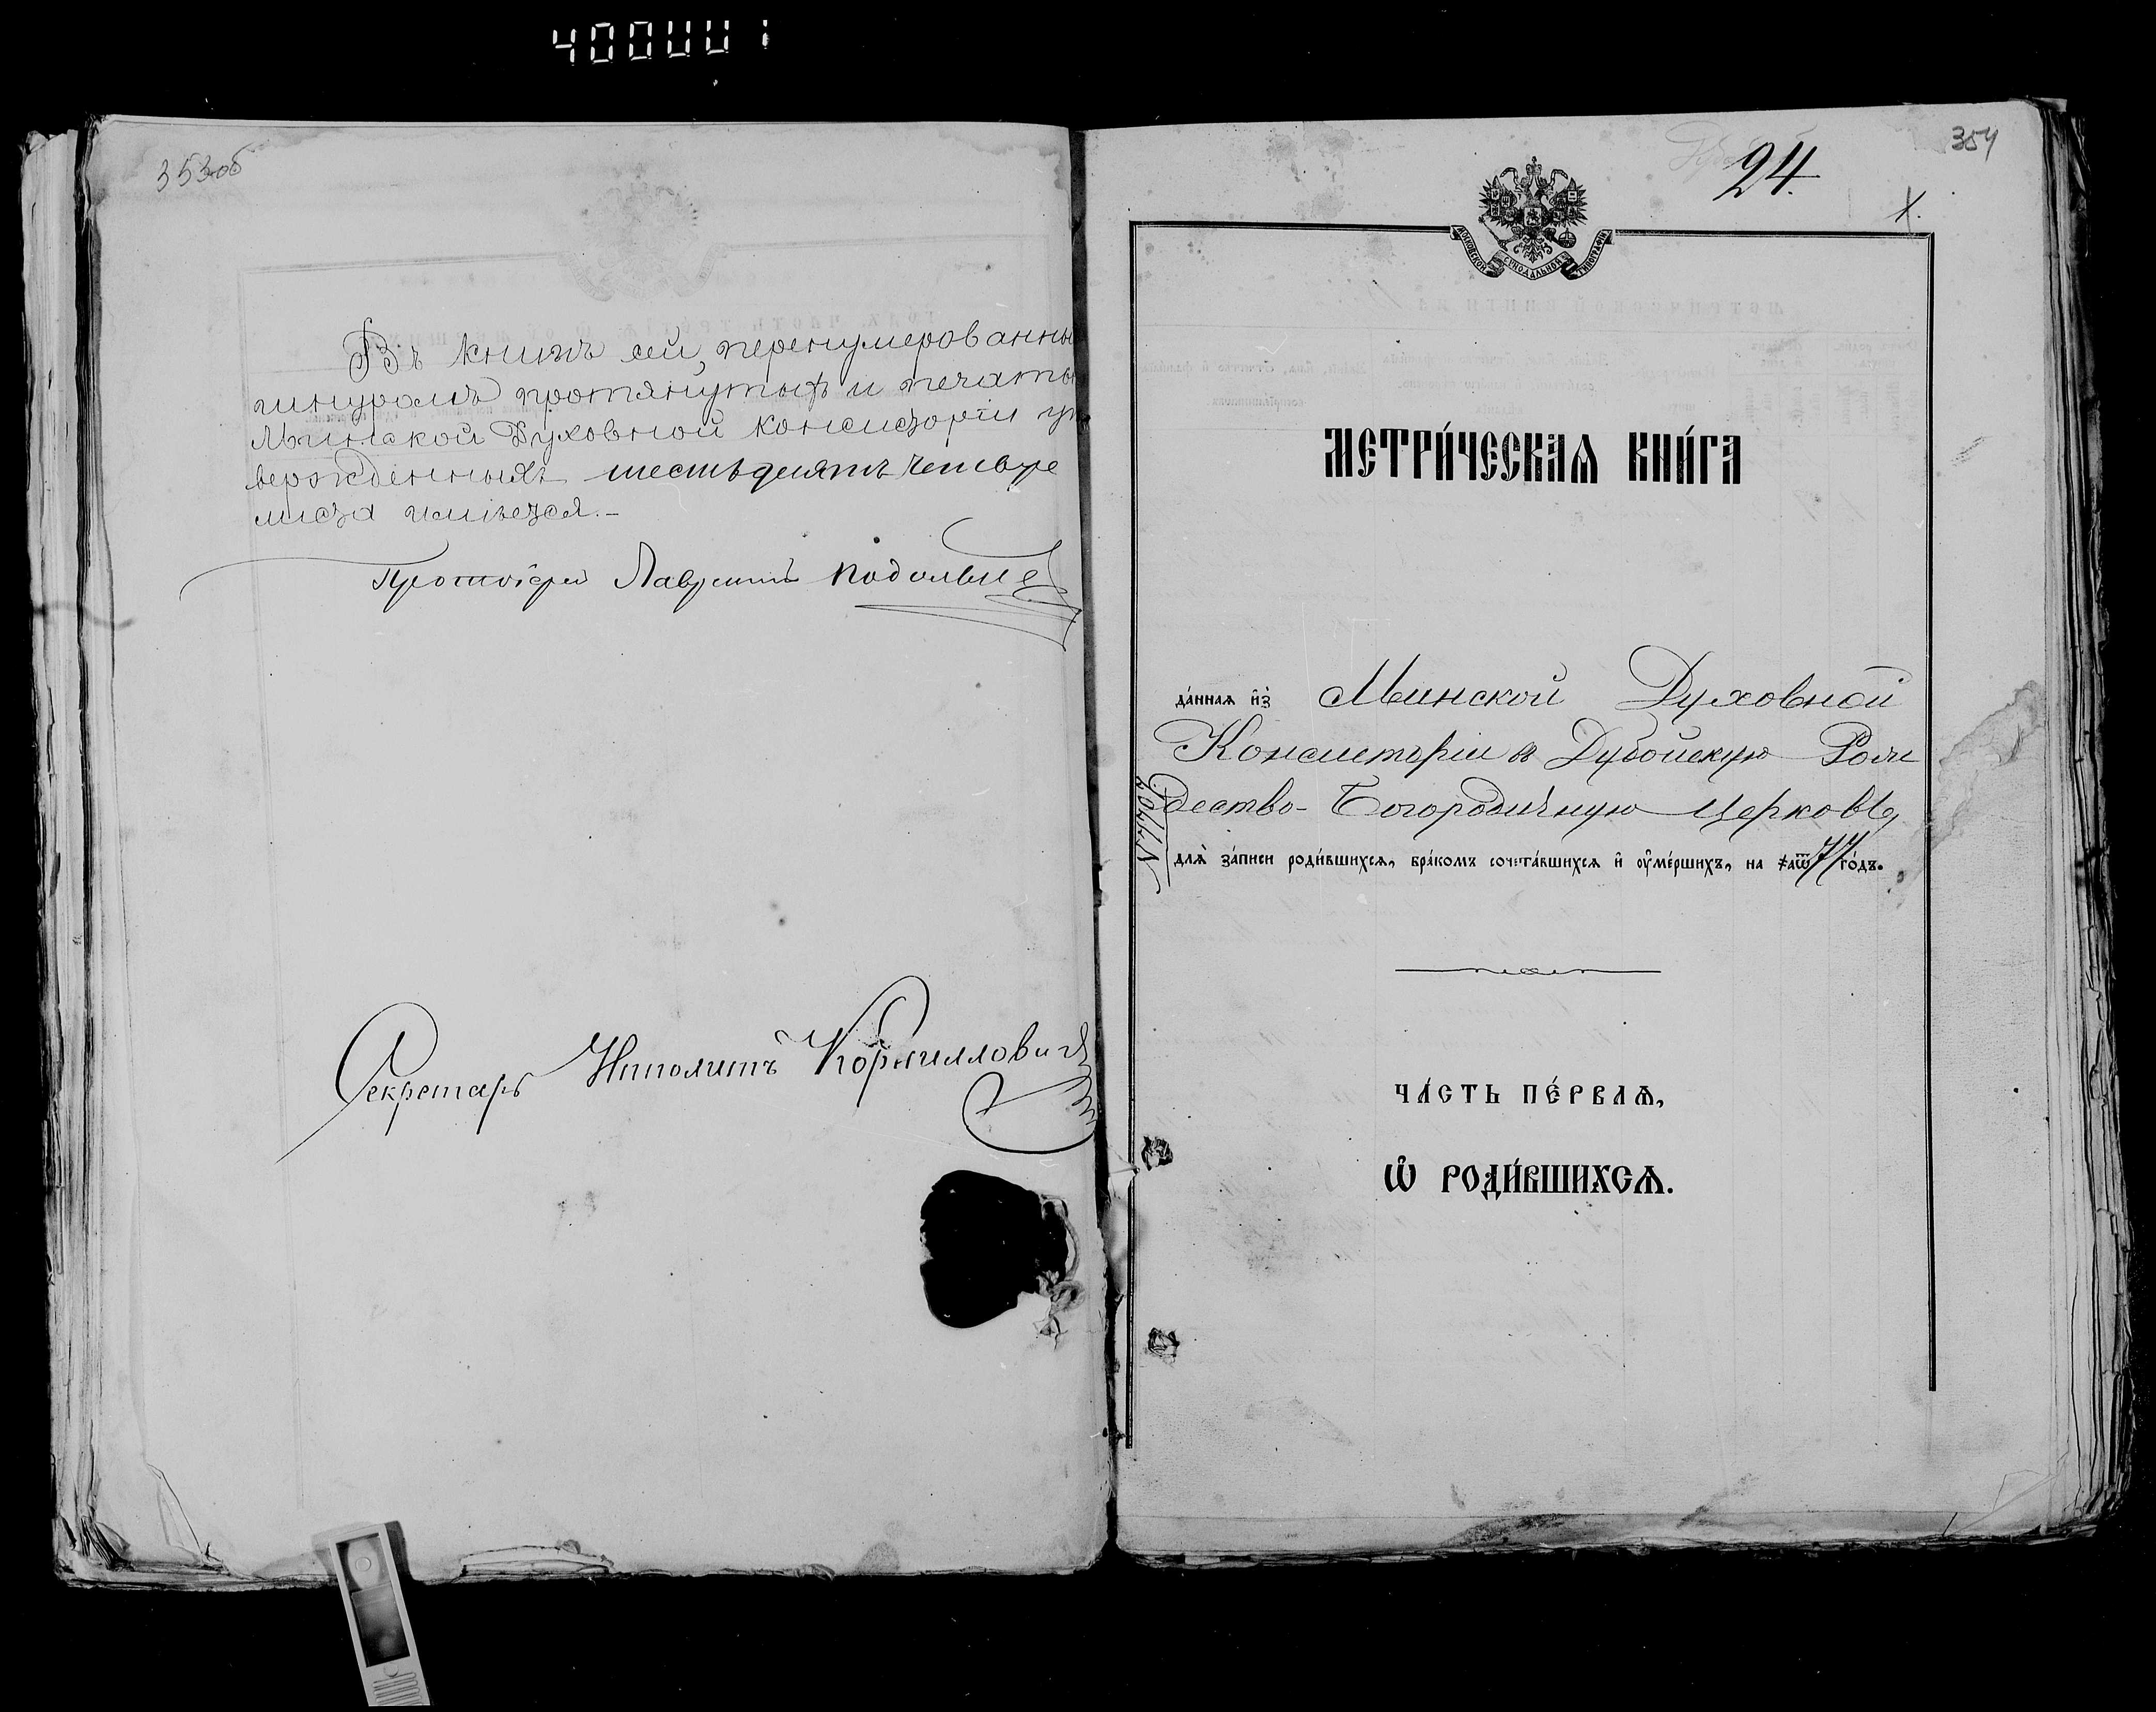 4000001
353об
Въ книгѣ сей, перенумерованны
шнуромъ протянутыхъ и печатью
Минской Духовной Консисторіи ут
вержденныхъ шестьдесятъ четыре
листа имѣется.-
Протоіерей Лаврентій
Секретарь Ипполитъ Корнилловичъ
354
24.
X.
МОСКОВСКОЙ СѴНОДАЛЬНОЙ ТИПОГРАФІИ
МЕТРИ́ЧЕСКАѦ КНИ́ГА
да́ннаѧ и҆з̾ Минской Духовной
Консисторіи въ Дубойскую Рож
дество-Богородичную церковь,
длѧ̀ за́писи роди́вшихсѧ, бра́комъ сочета́вшихсѧ и҆ ᲂу҆ме́ршихъ, на ҂аѿ77 го́дъ.
ЧА́СТЬ ПЕ́РВАѦ,
Ѡ҆ РОДИ́ВШИХСѦ.